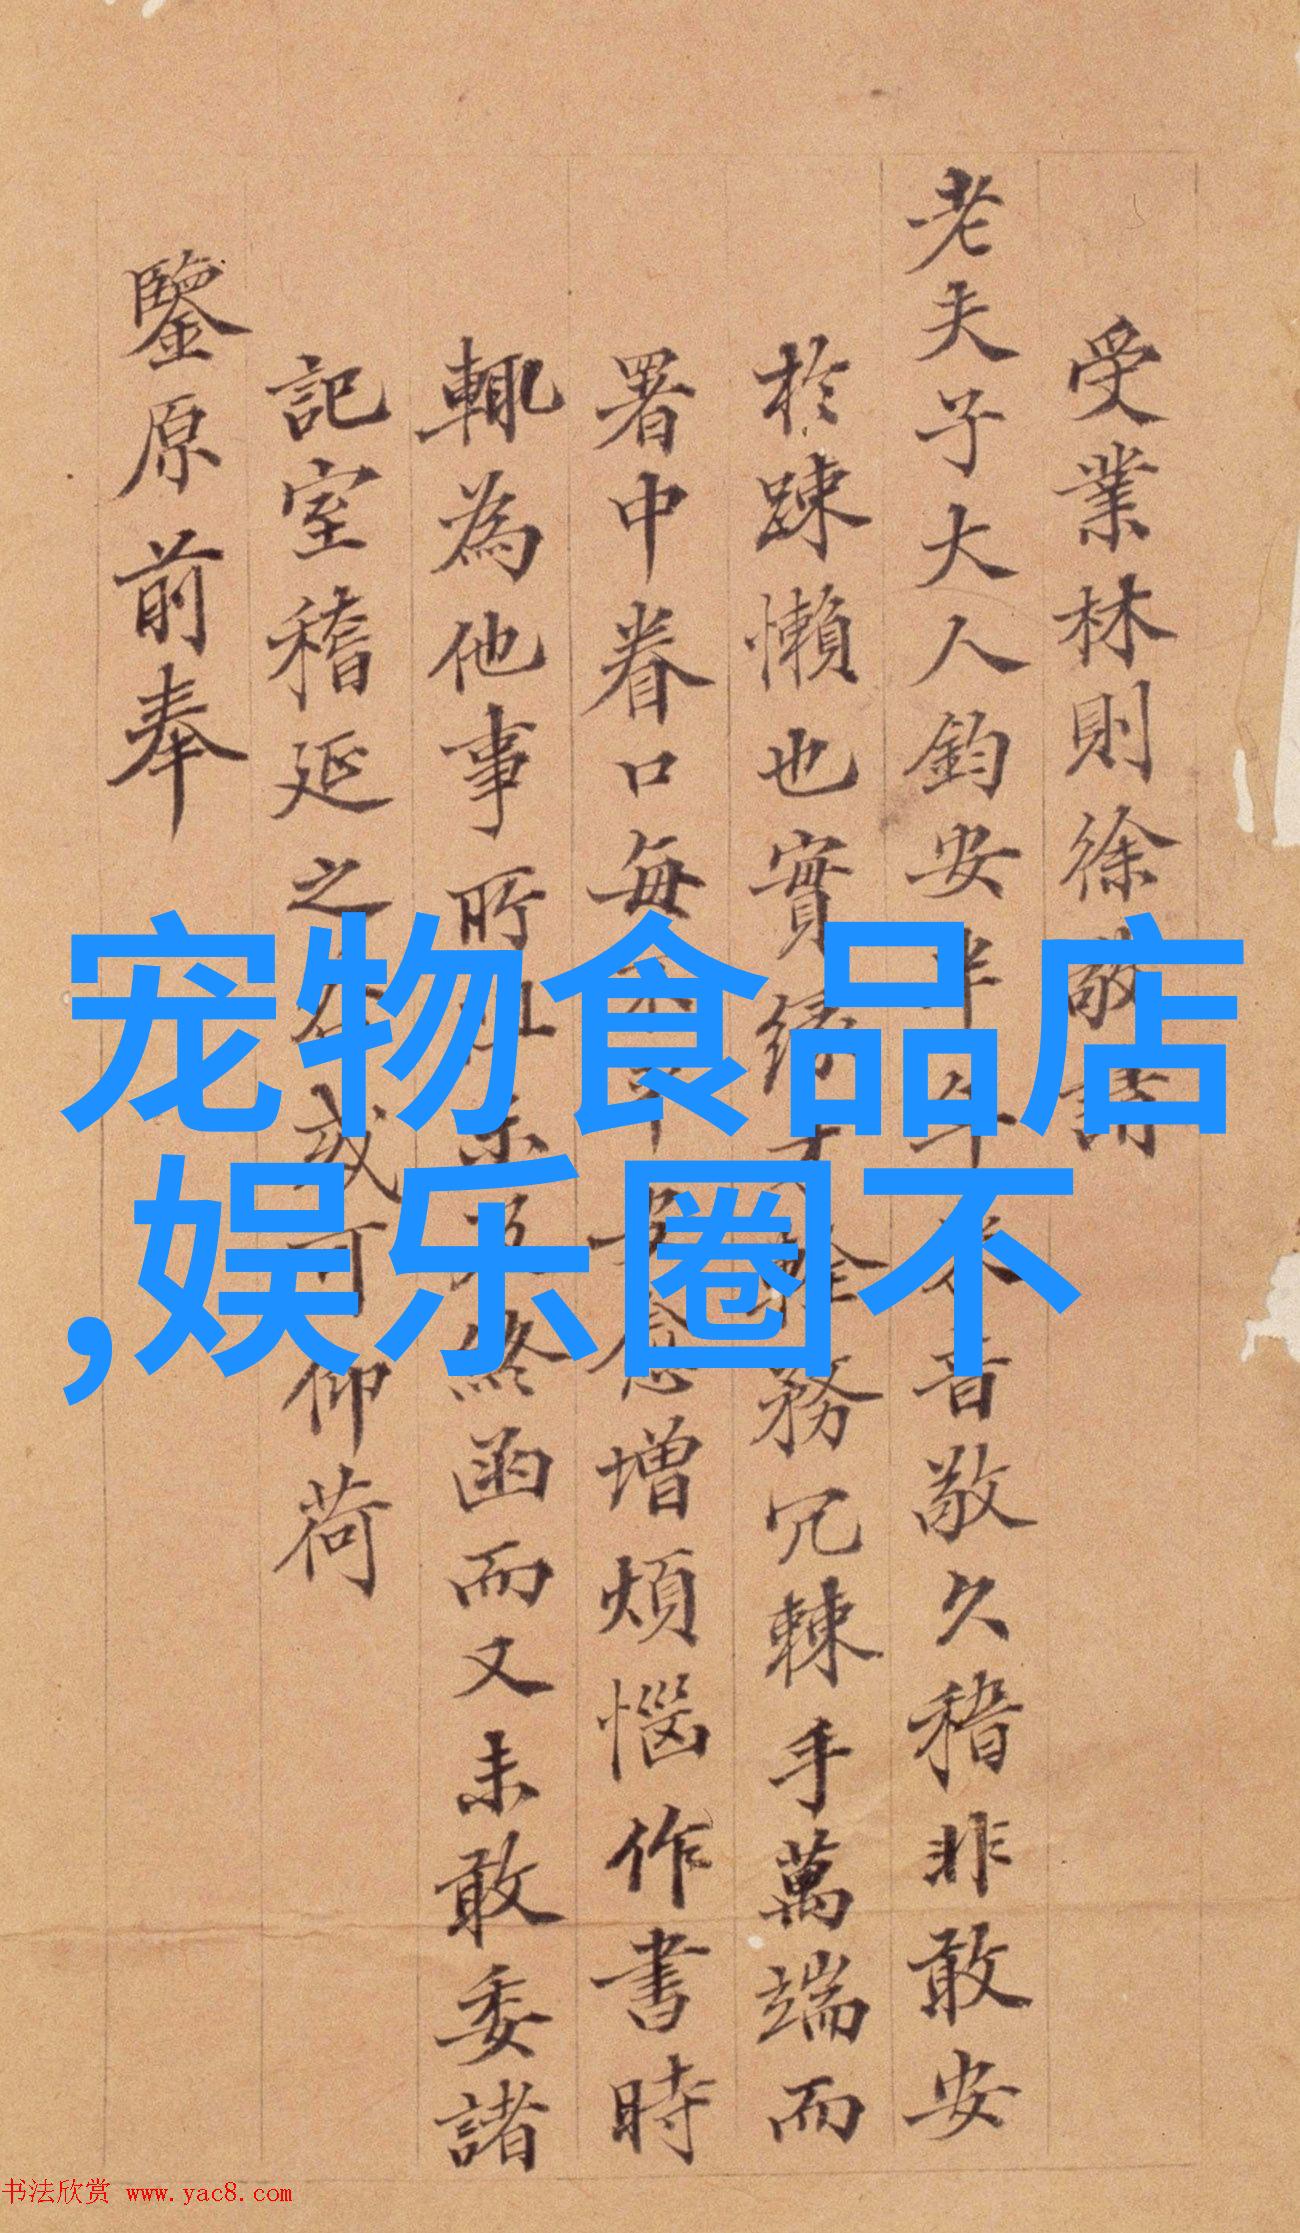 受業林則徐敬請
老夫子大人鈞安半年來音敬久稽非敢安
於踈懶也實緣
務冗棘手萬端而
署中眷口每
念增煩惱作書時
輒為他事所
終函而又未敢委諸
記室稽延之
或可仰荷
鑒原前奉
宠物食品店
,娱乐圈不
书法欣赏 www.yac8.com